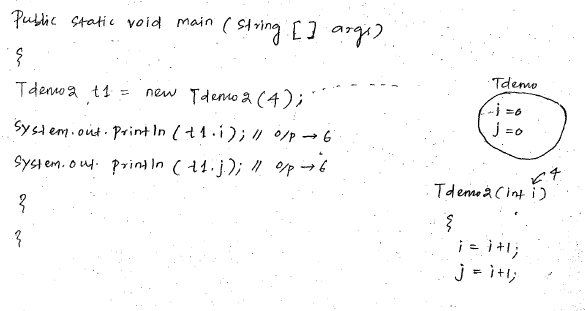 Public static void main (string [] args)
{
Tdemo2 t1 = new Tdemo2(4);
System.out.println (t1.i); // o/p → 6
System.out.println (t1.j); // o/p → 6
}
}
Tdemo
i = 0
j = 0
4
Tdemo2(int i)
{
i = i+1;
j = i+1;